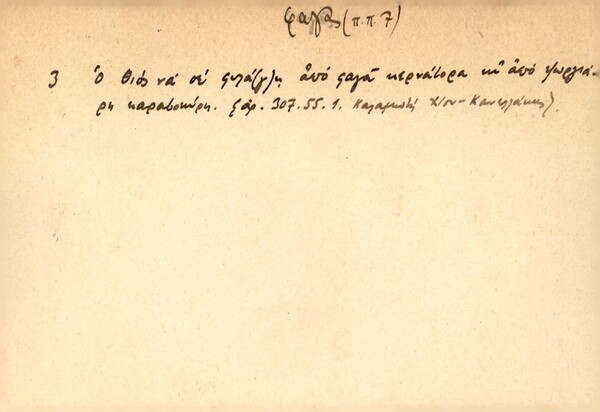 φαγᾶς (π.π. 7)
3 Ὁ Θιὸς νά σέ φυλά(γ)ῃ ἀπό φαγᾶ κερνάτορα κι' ἀπό ψωργιά-
ρη καραβοκύρη. (ἀρ. 307.55.1. Καλαμωτή Χίου - Κανελλάκης)